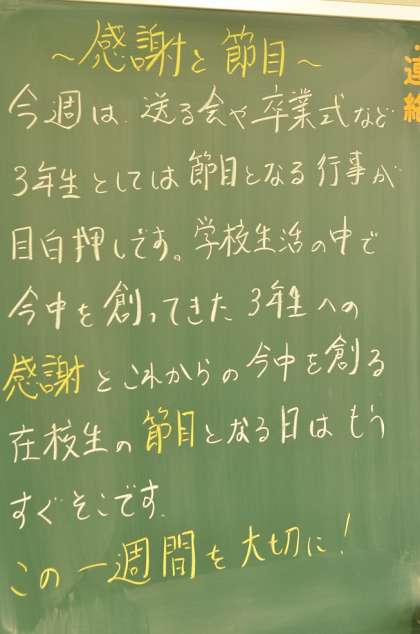 ～感謝と節目～
今週は、送る会や卒業式など
3年生としては節目となる行事が
目白押しです。学校生活の中で
今中を創ってきた3年生への
感謝とこれからの今中を創る
在校生の節目となる日はもう
すぐそこです。
この一週間を大切に！
連絡